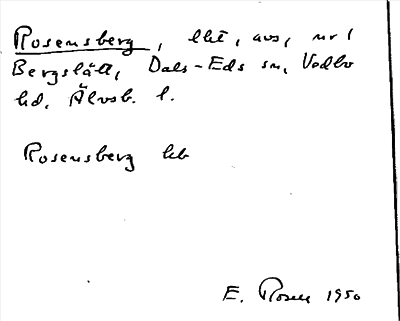 Rosensberg, lht, avs, nr 1
Bergslätt, Dals-Eds sn, Vedbo
hd, Älvsb. l.
Rosensberg hb
E. Rosell 1950